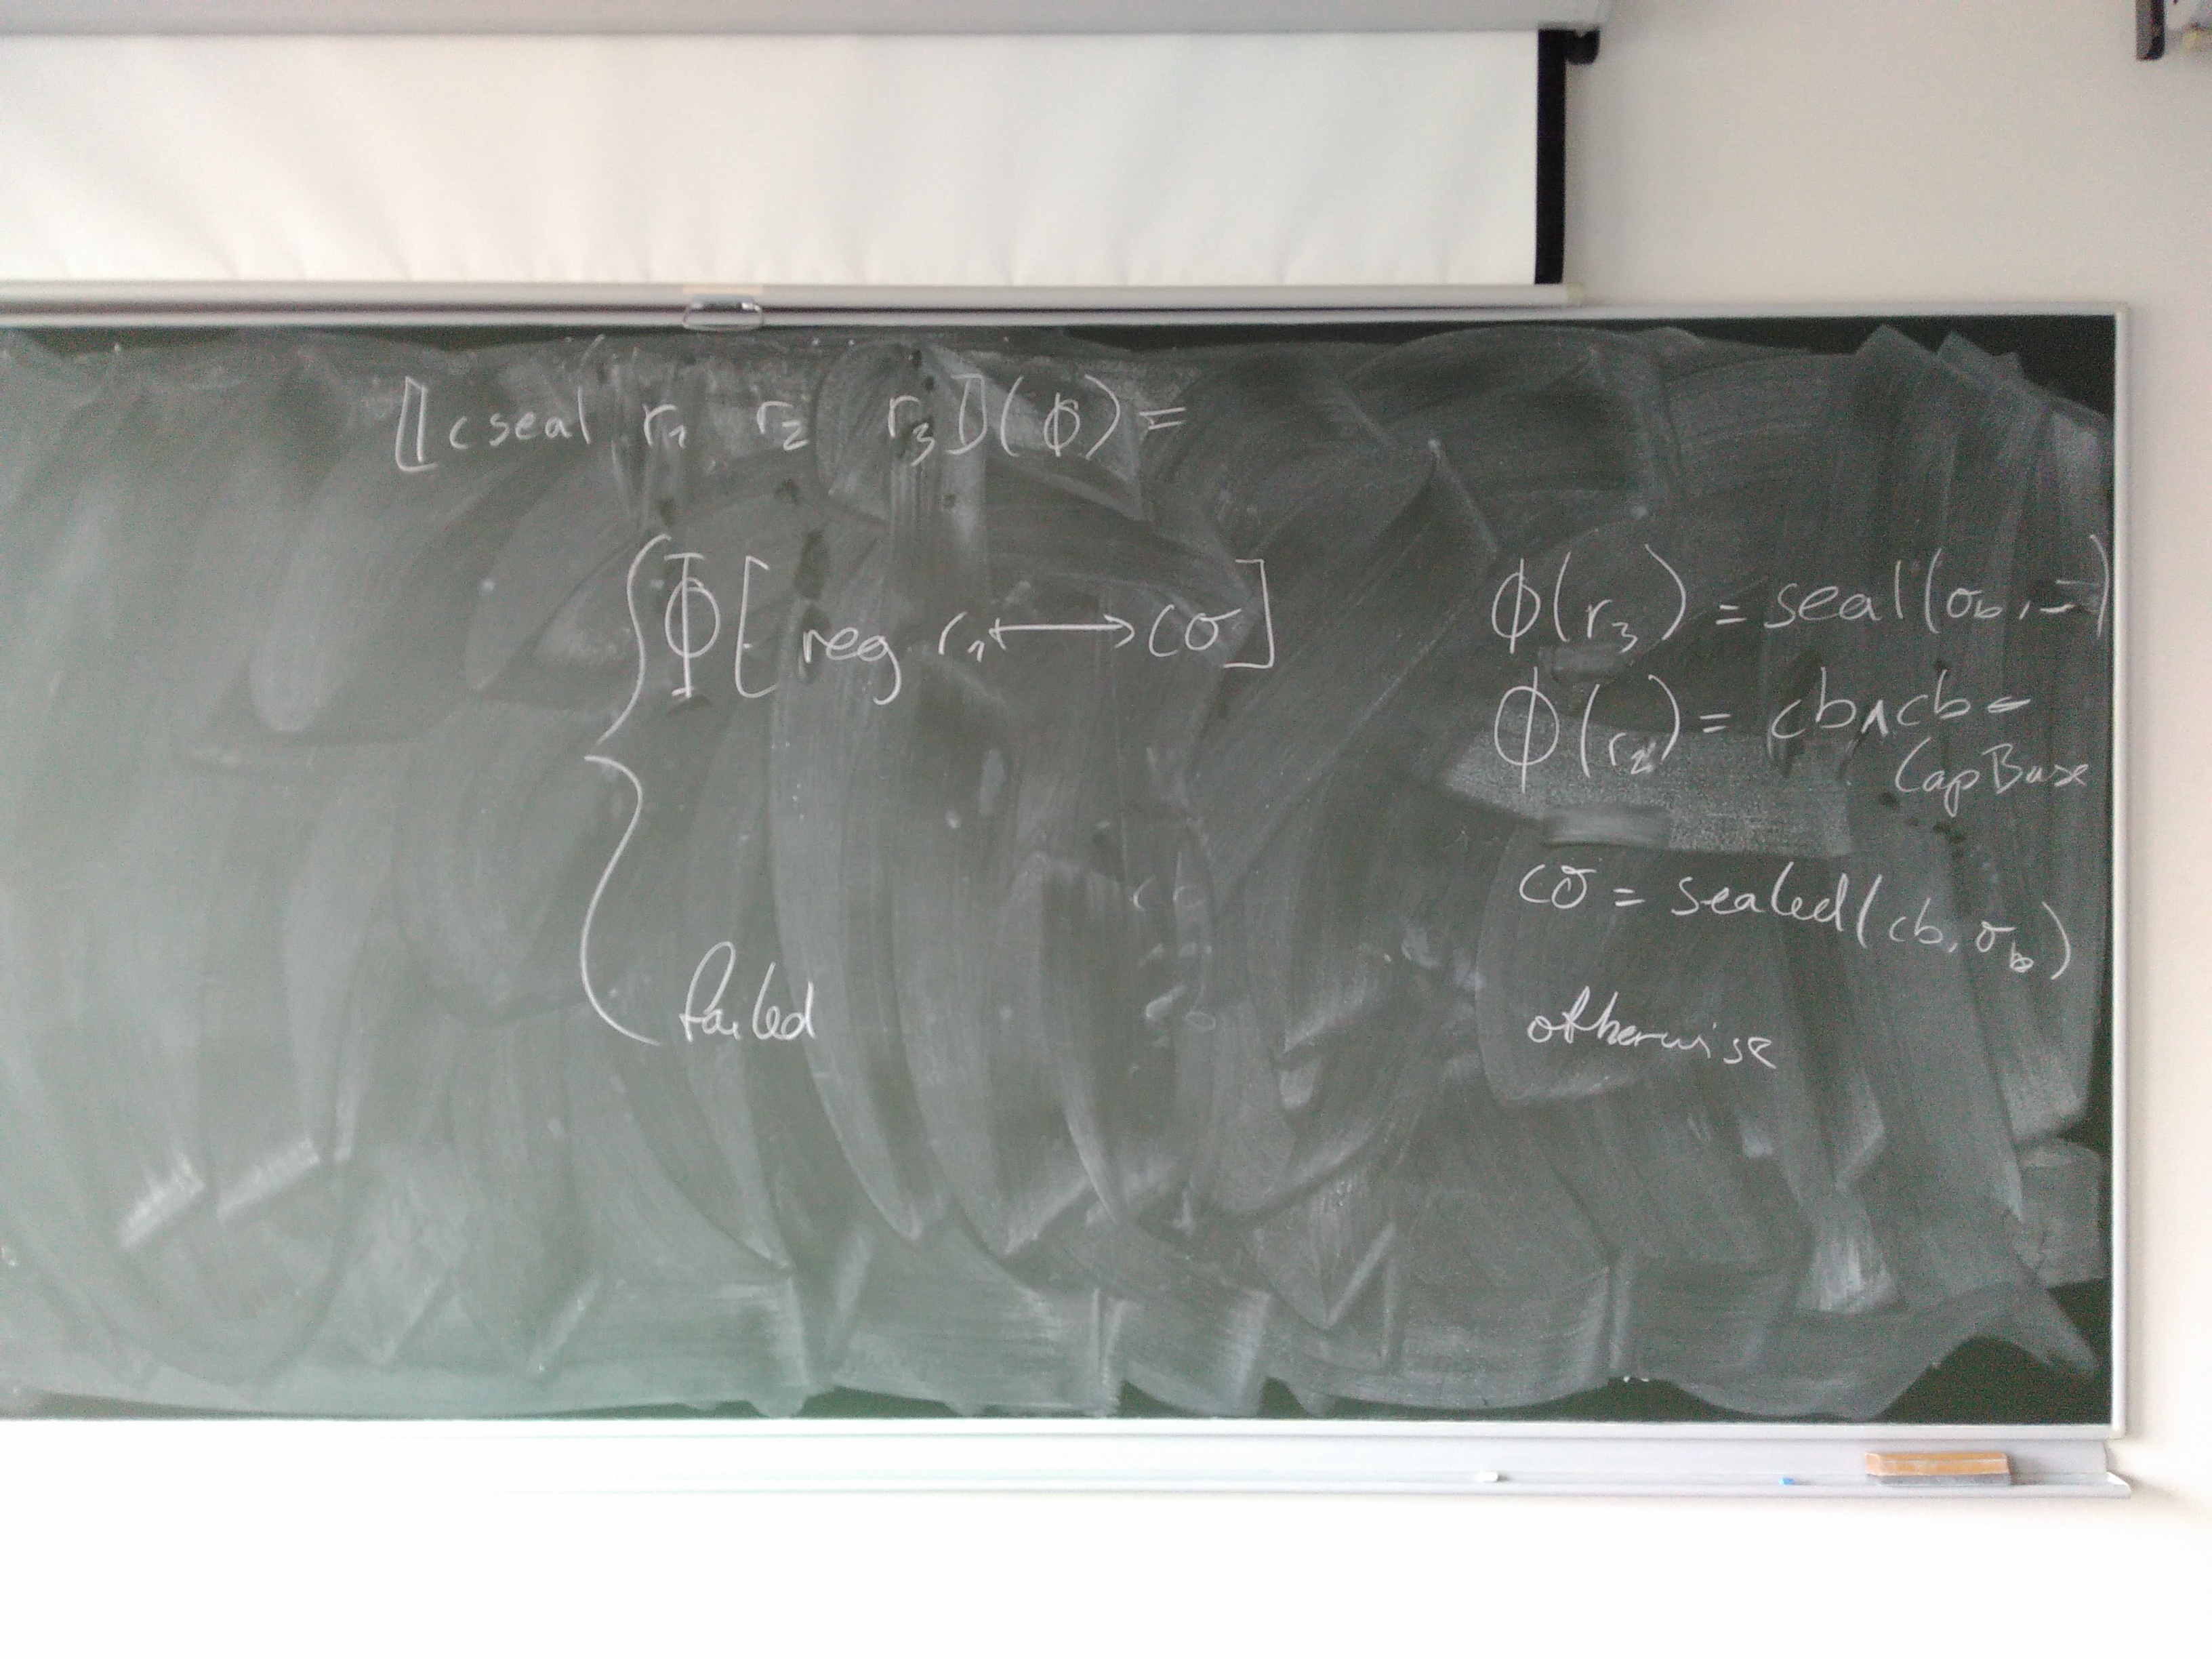 ⟦cseal r₁ r₂ r₃⟧(Φ) =
Φ[reg r₁ ⟼ cσ] Φ(r₃) = seal(σb, _)
Φ(r₂) = cb ∧ cb =
CapBase
cσ = sealed(cb, σb)
failed otherwise